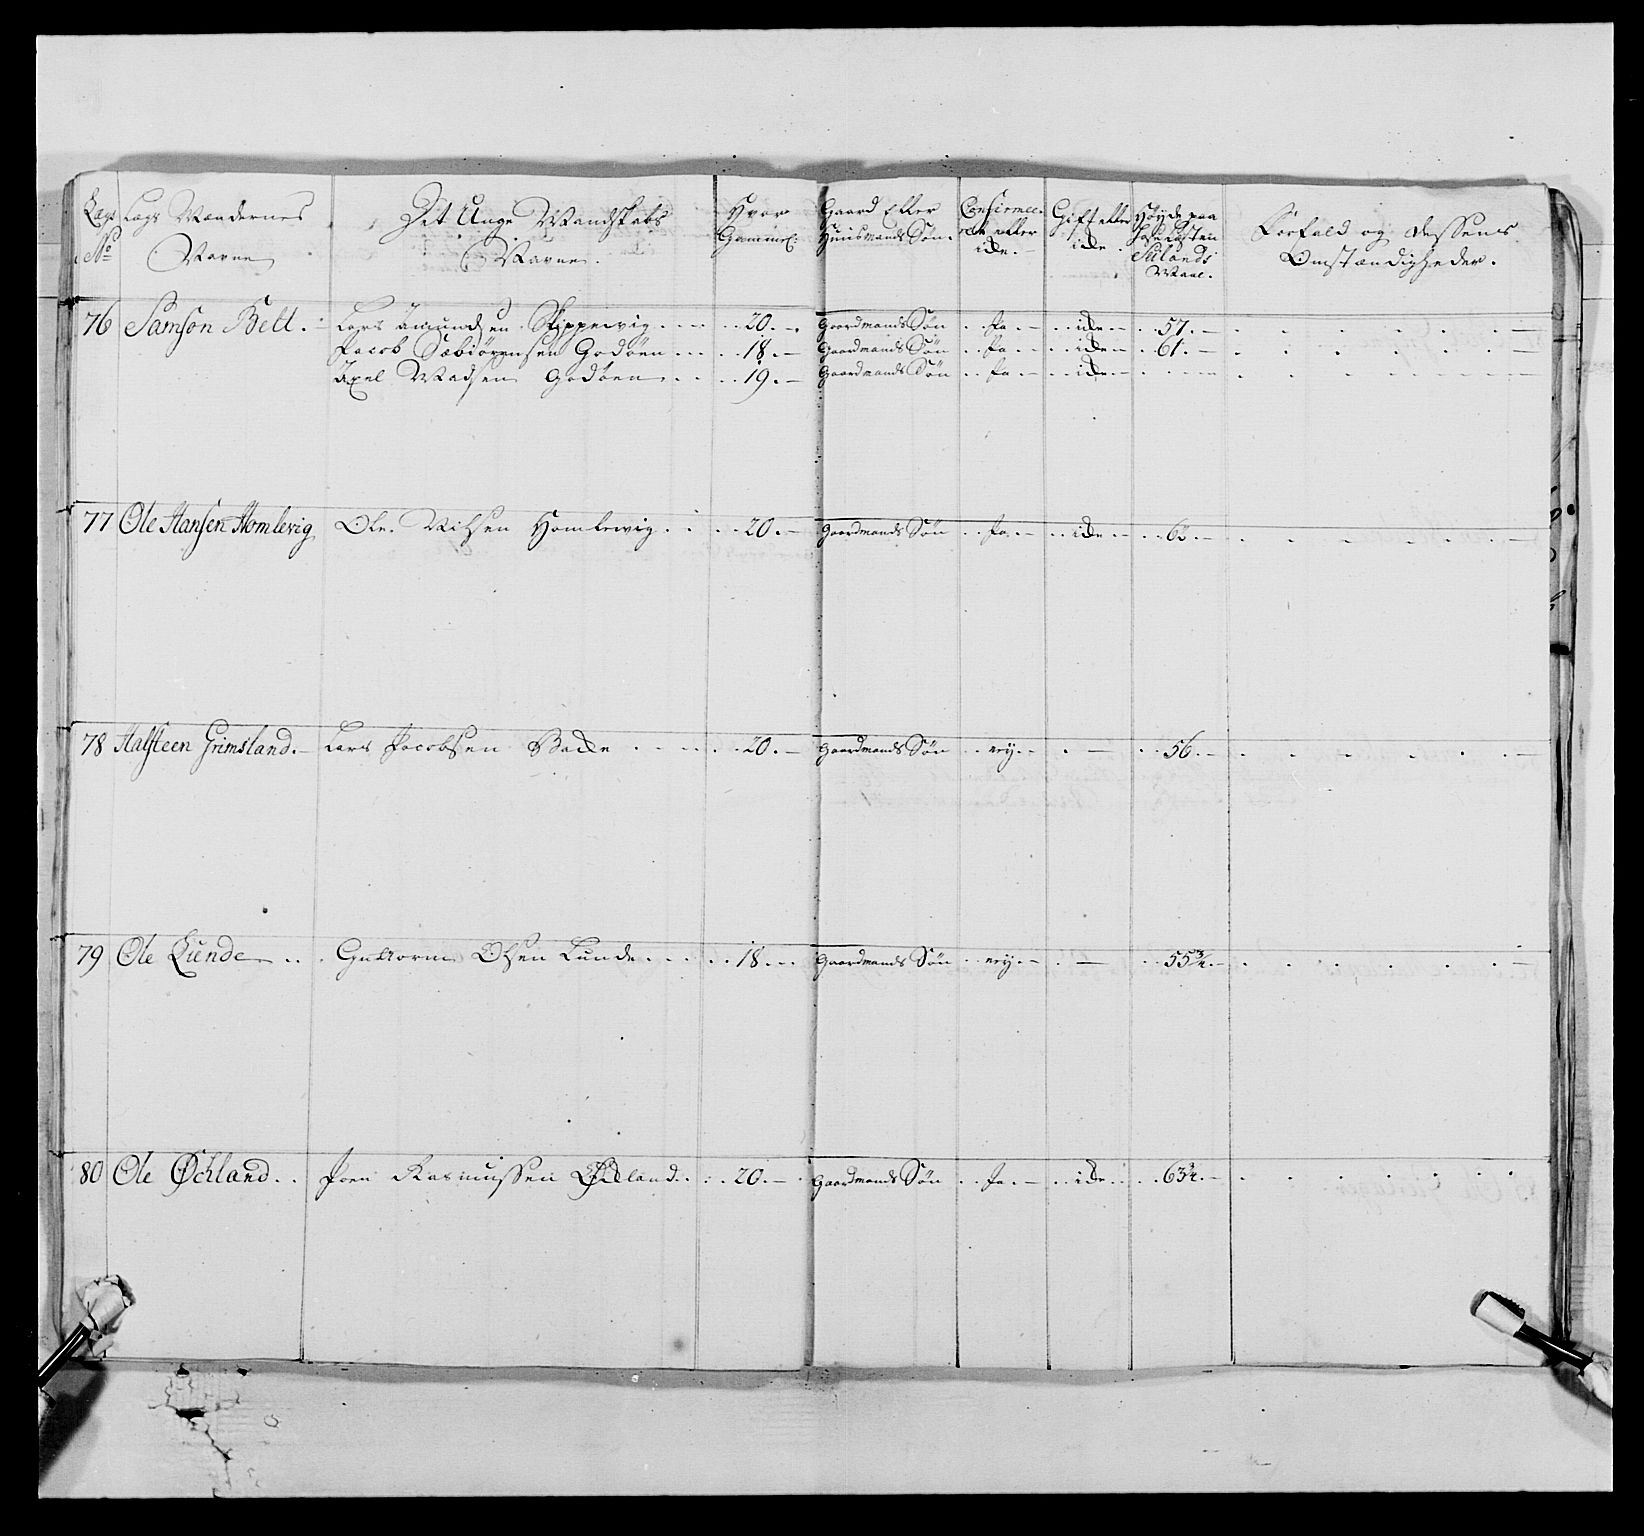 Lægs No
Lægs Mændernes Navne
Det Unge Mandskabs Navne.
Hvor Gammel:
Gaard Eller Huusmands Søn.
Confirmeerede eller icke.
Gift eller icke.
Høyde paa Sælands Maal.
Forfald og dessens Omstændigheder.
76 Samson Bell. Lars Amundsen Skippervig. 20. Gaardmands Søn Ja icke 57.
Jacob Sæbiørensen Godøen 18. Gaardmands Søn Ja icke 61.
Axel Madsen Godøen 19. Gaardmands Søn Ja icke
77 Ole Hansen Homlevig Ole Nilsen Homlewig. 20. Gaardmands Søn Ja icke
78 Halsteen Grimsland. Lars Jacobsen Backe 20. Gaardmands Søn ney. — 56.
79 Ole Lunde Guttorm Olsen Lunde. 18. Gaardmands Søn ney. — 55 3/4.
80 Ole Øckland. Joen Rasmussen Øckland. 20. Gaardmands Søn Ja icke 63 3/4.